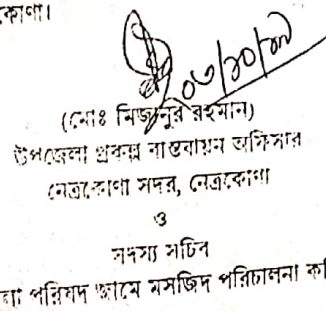 কোণা।
০৩/১০/১৭
(মোঃ মিজানুর রহমান)
উপজেলা প্রকল্প বাস্তবায়ন অফিসার
নেত্রকোণা সদর, নেত্রকোণা
ও
সদস্য সচিব
পরিষদ জামে মসজিদ পরিচালনা